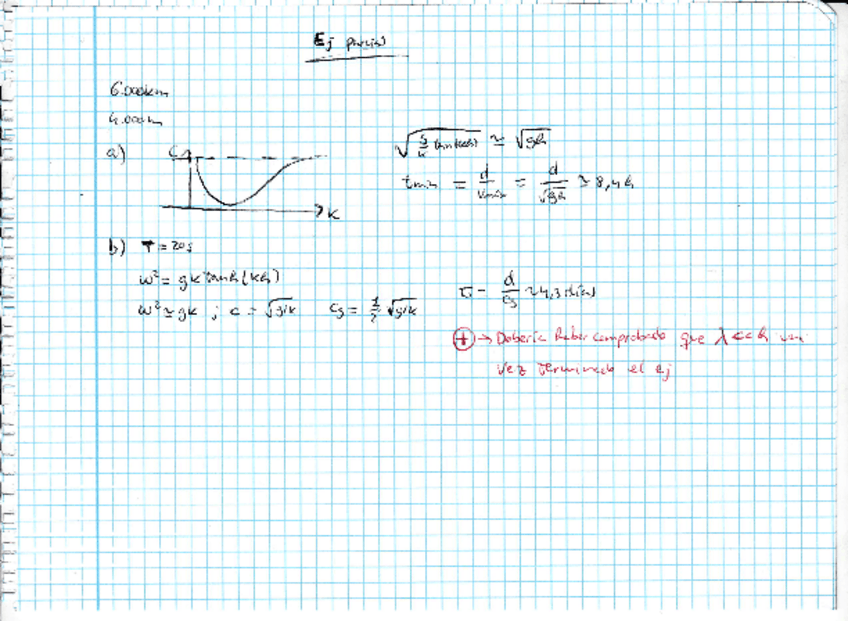 Ej parcial
6.000km
4.000m
a) C k
√(g/k tanh(kh)) ≃ √gh
tmin = d/vmax = d/√gh ≃ 8,4h
b) T = 20s
ω² = gk tanh(kh)
ω² ≃ gk ; c = √g/k cg = 1/2 √g/k
τ = d/cg ≃ 4,3 días
+ → Debería haber comprobado que λ << h una
vez terminado el ej